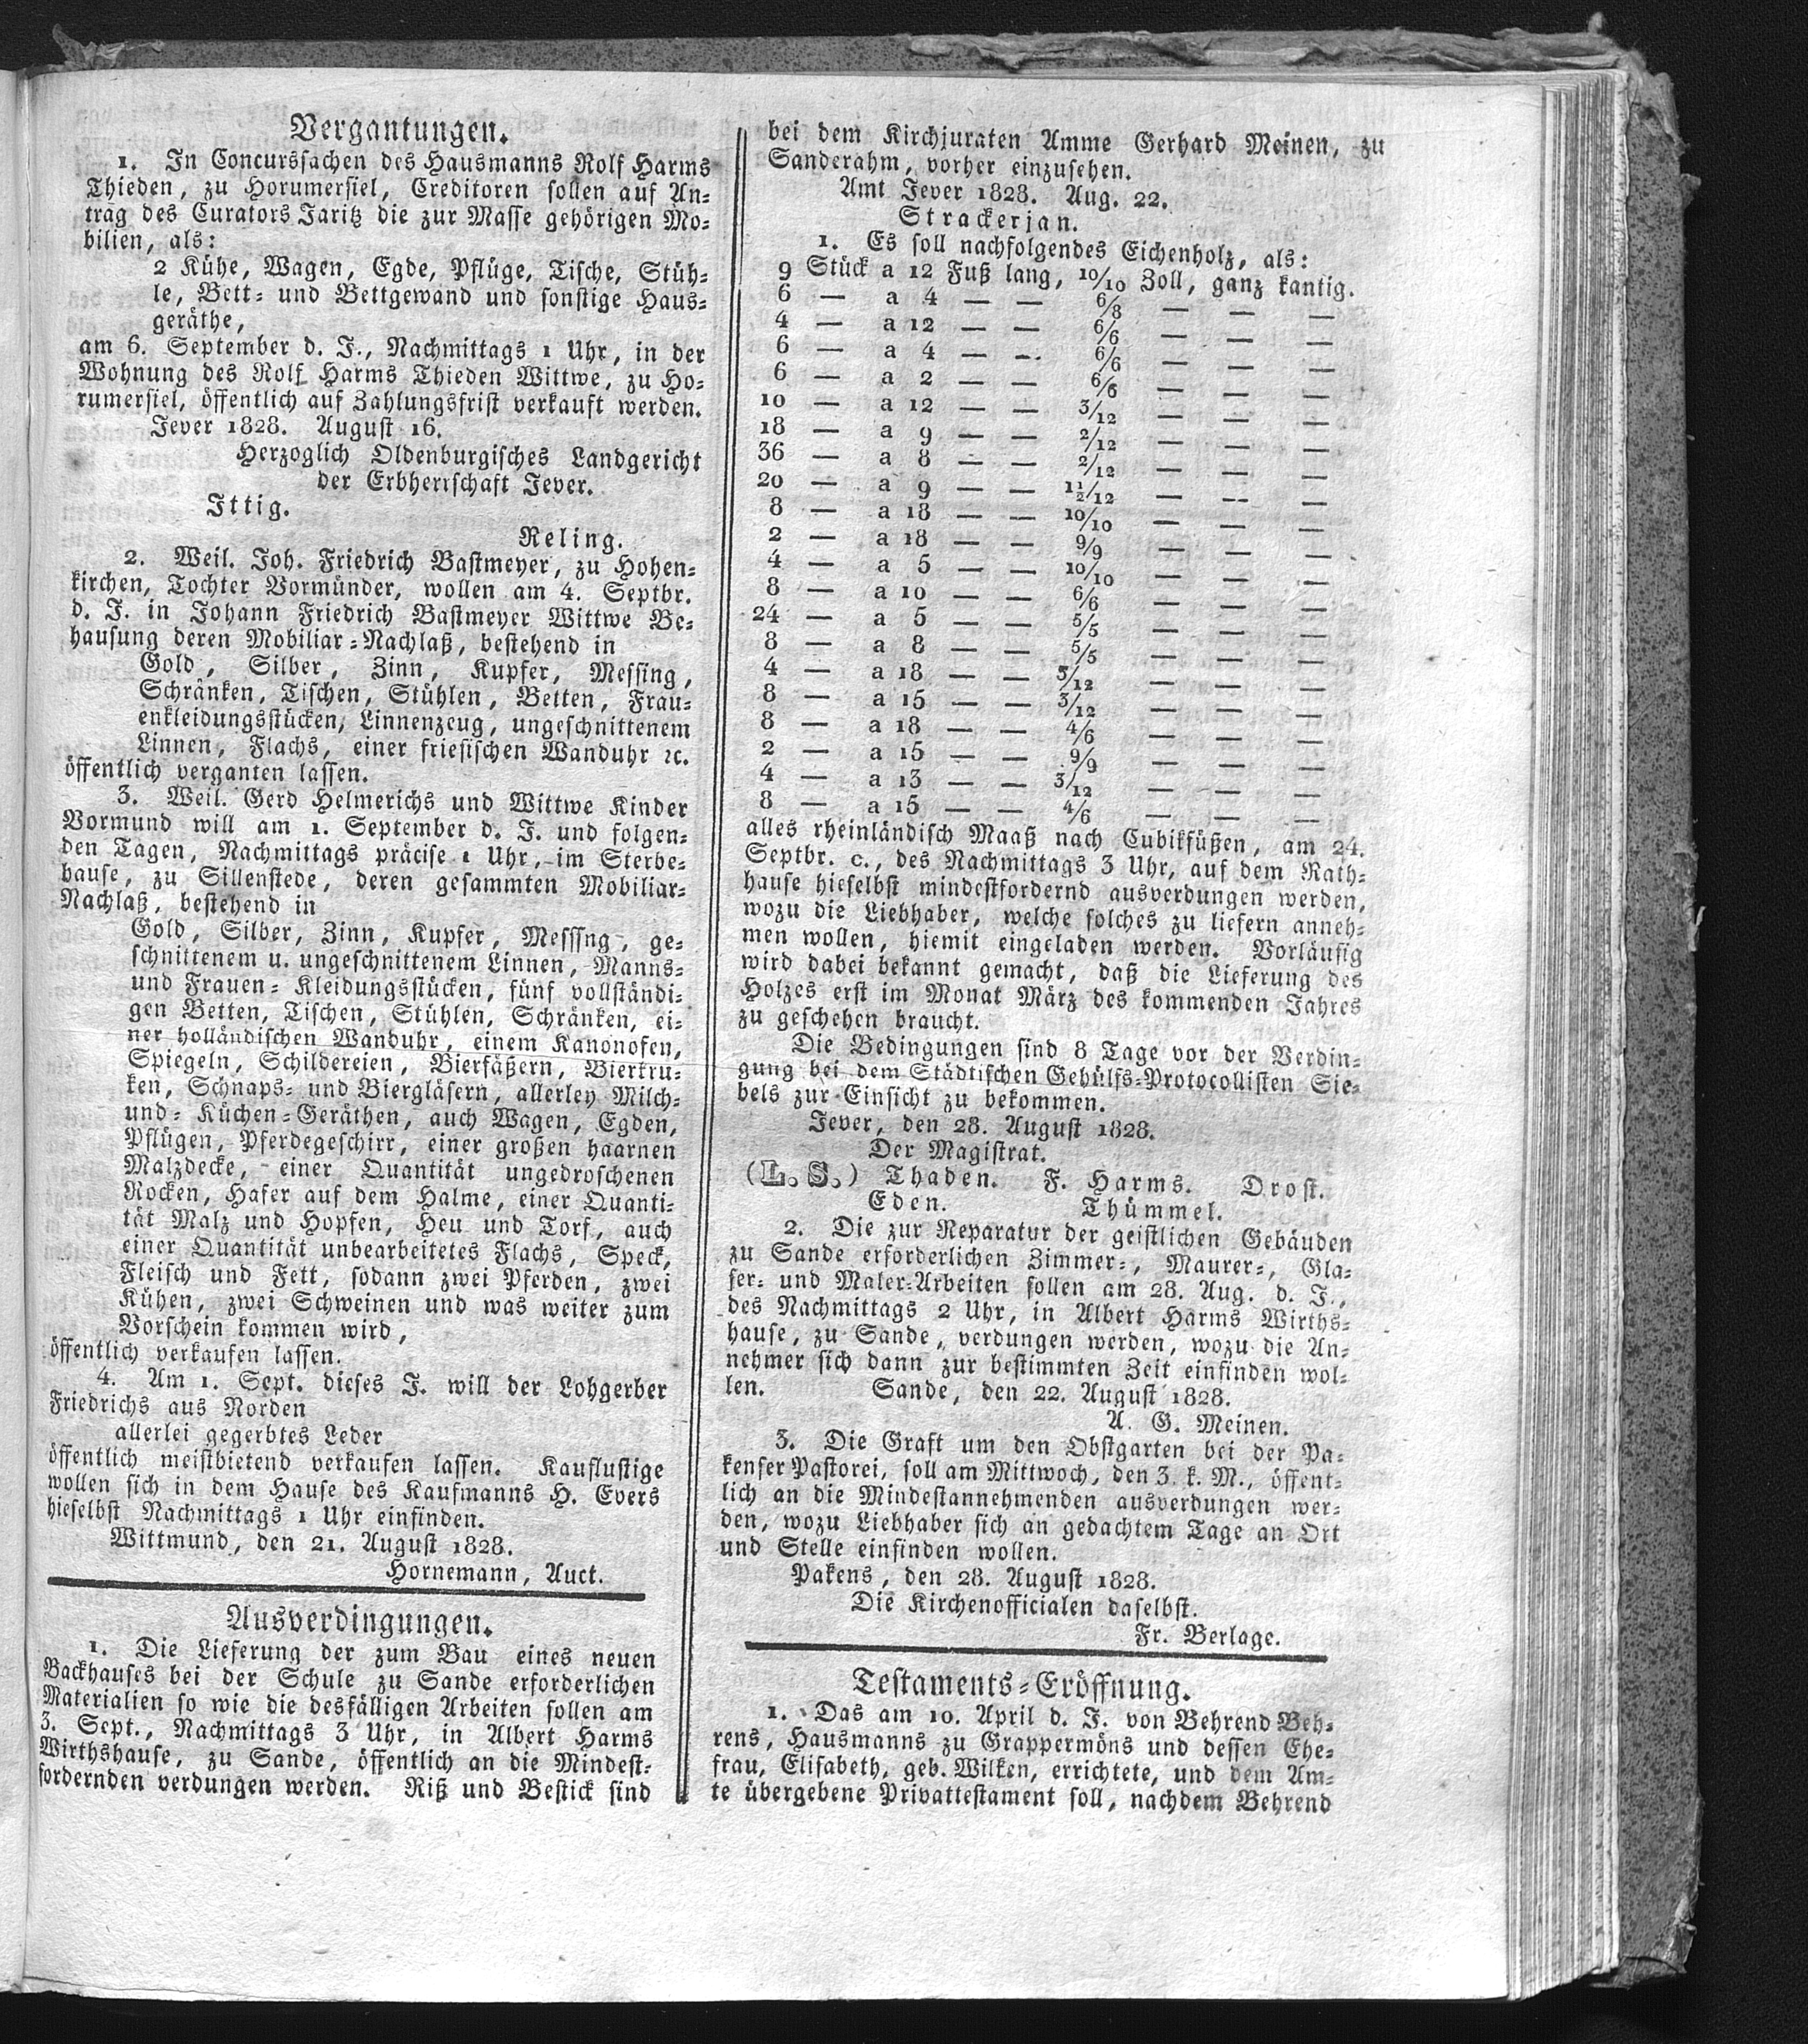 Vergantungen.
1. In Concurssachen des Hausmanns Rolf Harms
Thieden, zu Horumersiel, Creditoren sollen auf An-
trag des Curators Jaritz die zur Masse gehörigen Mo-
bilien, als:
2 Kühe, Wagen, Egde, Pflüge, Tische, Stüh-
le, Bett- und Bettgewand und sonstige Haus-
geräthe,
am 6. September d. J., Nachmittags 1 Uhr, in der
Wohnung des Rolf Harms Thieden Wittwe, zu Ho-
rumersiel, öffentlich auf Zahlungsfrist verkauft werden.
Jever 1828. August 16.
Herzoglich Oldenburgisches Landgericht
der Erbherrschaft Jever.
Ittig.
Reling.
2. Weil. Joh. Friedrich Bastmeyer, zu Hohen-
kirchen, Tochter Vormünder, wollen am 4. Septbr.
d. J. in Johann Friedrich Bastmeyer Wittwe Be-
hausung deren Mobiliar-Nachlaß, bestehend in
Gold, Silber, Zinn, Kupfer, Messing,
Schränken, Tischen, Stühlen, Betten, Frau-
enkleidungsstücken, Linnenzeug, ungeschnittenem
Linnen, Flachs, einer friesischen Wanduhr ꝛc.
öffentlich verganten lassen.
3. Weil. Gerd Helmerichs und Wittwe Kinder
Vormund will am 1. September d. J. und folgen-
den Tagen, Nachmittags präcise 1 Uhr, im Sterbe-
hause, zu Sillenstede, deren gesammten Mobiliar-
Nachlaß, bestehend in
Gold, Silber, Zinn, Kupfer, Messsng, ge-
schnittenem u. ungeschnittenem Linnen, Manns-
und Frauen- Kleidungsstücken, fünf vollständi-
gen Betten, Tischen, Stühlen, Schränken, ei-
ner holländischen Wanduhr, einem Kanonofen,
Spiegeln, Schildereien, Bierfäßern, Bierkru-
ken, Schnaps- und Biergläsern, allerley Milch-
und- Küchen-Geräthen, auch Wagen, Egden,
Pflügen, Pferdegeschirr, einer großen haarnen
Malzdecke, einer Quantität ungedroschenen
Rocken, Hafer auf dem Halme, einer Quanti-
tät Malz und Hopfen, Heu und Torf, auch
einer Quantität unbearbeitetes Flachs, Speck,
Fleisch und Fett, sodann zwei Pferden, zwei
Kühen, zwei Schweinen und was weiter zum
Vorschein kommen wird,
öffentlich verkaufen lassen.
4. Am 1. Sept. dieses J. will der Lohgerber
Friedrichs aus Norden
allerlei gegerbtes Leder
öffentlich meistbietend verkaufen lassen. Kauflustige
wollen sich in dem Hause des Kaufmanns H. Evers
hieselbst Nachmittags 1 Uhr einfinden.
Wittmund, den 21. August 1828.
Hornemann, Auct.
Ausverdingungen.
1. Die Lieferung der zum Bau eines neuen
Backhauses bei der Schule zu Sande erforderlichen
Materialien so wie die desfälligen Arbeiten sollen am
3. Sept., Nachmittags 3 Uhr, in Albert Harms
Wirthshause, zu Sande, öffentlich an die Mindest-
fordernden verdungen werden. Riß und Bestick sind
bei dem Kirchjuraten Amme Gerhard Meinen, zu
Sanderahm, vorher einzusehen.
Amt Jever 1828. Aug. 22.
Strackerjan.
1. Es soll nachfolgendes Eichenholz, als:
9 Stück a 12 Fuß lang, 10/10 Zoll, ganz kantig.
6 — a 4 — — 6/8 — — —
4 — a 12 — — 6/6 — — —
6 — a 4 — — 6/6 — — —
6 — a 2 — — 6/6 — — —
10 — a 12 — — 3/12 — — —
18 — a 9 — — 2/12 — — —
36 — a 8 — — 2/12 — — —
20 — a 9 — — 1½/12 — — —
8 — a 18 — — 10/10 — — —
2 — a 18 — — 9/9 — — —
4 — a 5 — — 10/10 — — —
8 — a 10 — — 6/6 — — —
24 — a 5 — — 5/5 — — —
8 — a 8 — — 5/5 — — —
4 — a 18 — — 3/12 — — —
8 — a 15 — — 3/12 — — —
8 — a 18 — — 4/6 — — —
2 — a 15 — — 9/9 — — —
4 — a 13 — — 3/12 — — —
8 — a 15 — — 4/6 — — —
alles rheinländisch Maaß nach Cubikfüßen, am 24.
Septbr. c., des Nachmittags 3 Uhr, auf dem Rath-
hause hieselbst mindestfordernd ausverdungen werden,
wozu die Liebhaber, welche solches zu liefern anneh-
men wollen, hiemit eingeladen werden. Vorläufig
wird dabei bekannt gemacht, daß die Lieferung des
Holzes erst im Monat März des kommenden Jahres
zu geschehen braucht.
Die Bedingungen sind 8 Tage vor der Verdin-
gung bei dem Städtischen Gehülfs-Protocollisten Sie-
bels zur Einsicht zu bekommen.
Jever, den 28. August 1828.
Der Magistrat.
(L. S.) Thaden. F. Harms. Drost.
Eden. Thümmel.
2. Die zur Reparatur der geistlichen Gebäuden
zu Sande erforderlichen Zimmer-, Maurer-, Gla-
ser- und Maler-Arbeiten sollen am 28. Aug. d. J.,
des Nachmittags 2 Uhr, in Albert Harms Wirths-
hause, zu Sande, verdungen werden, wozu die An-
nehmer sich dann zur bestimmten Zeit einfinden wol-
len. Sande, den 22. August 1828.
A. G. Meinen.
3. Die Graft um den Obstgarten bei der Pa-
kenser Pastorei, soll am Mittwoch, den 3. k. M., öffent-
lich an die Mindestannehmenden ausverdungen wer-
den, wozu Liebhaber sich an gedachtem Tage an Ort
und Stelle einfinden wollen.
Pakens, den 28. August 1828.
Die Kirchenofficialen daselbst.
Fr. Berlage.
Testaments-Eröffnung.
1. Das am 10. April d. J. von Behrend Beh-
rens, Hausmanns zu Grappermöns und dessen Ehe-
frau, Elisabeth, geb. Wilken, errichtete, und dem Am-
te übergebene Privattestament soll, nachdem Behrend